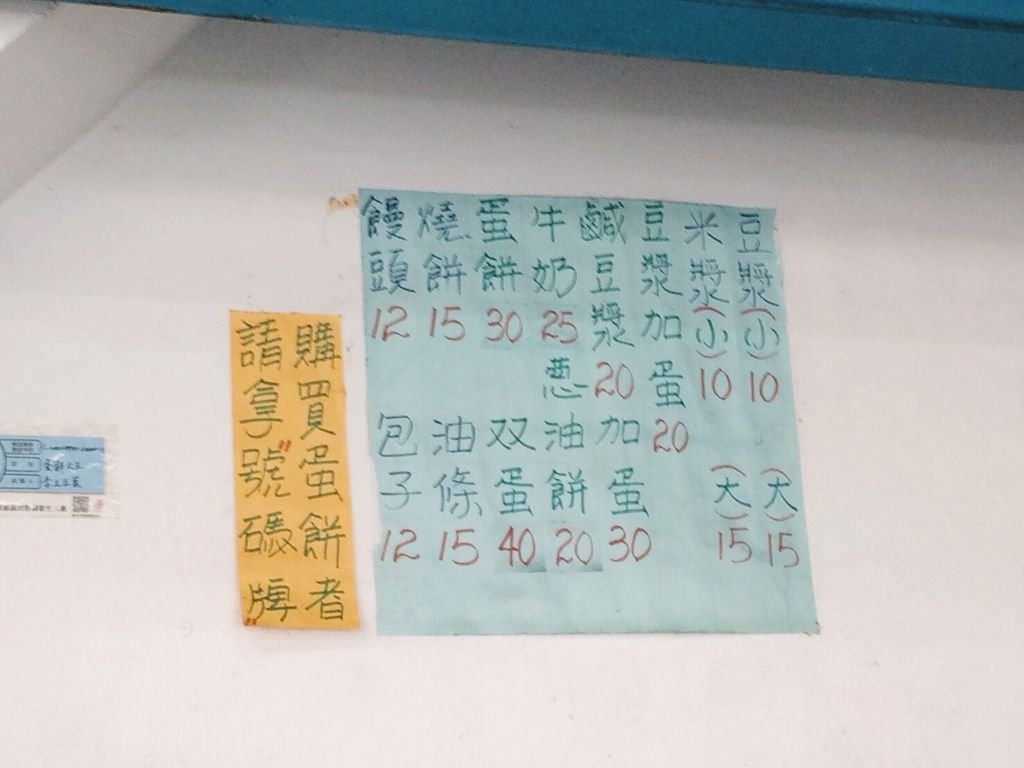 豆漿(小)10 (大)15
米漿(小)10 (大)15
豆漿加蛋20
鹹豆漿20
加蛋30
牛奶25
葱油餅20
蛋餅30
双蛋40
燒餅15
油條15
饅頭12
包子12
購買蛋餅者
請拿"號碼牌"